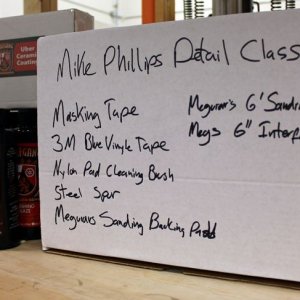 Mike Phillips Detail Class
Masking Tape
3M Blue Vinyle Tape
Nylon Pad Cleaning Brush
Steel Spur
Meguiars Sanding Backing Pad
Meguiar's 6" Sandi
Megs 6" Interf
Uber
Ceramic
Coating